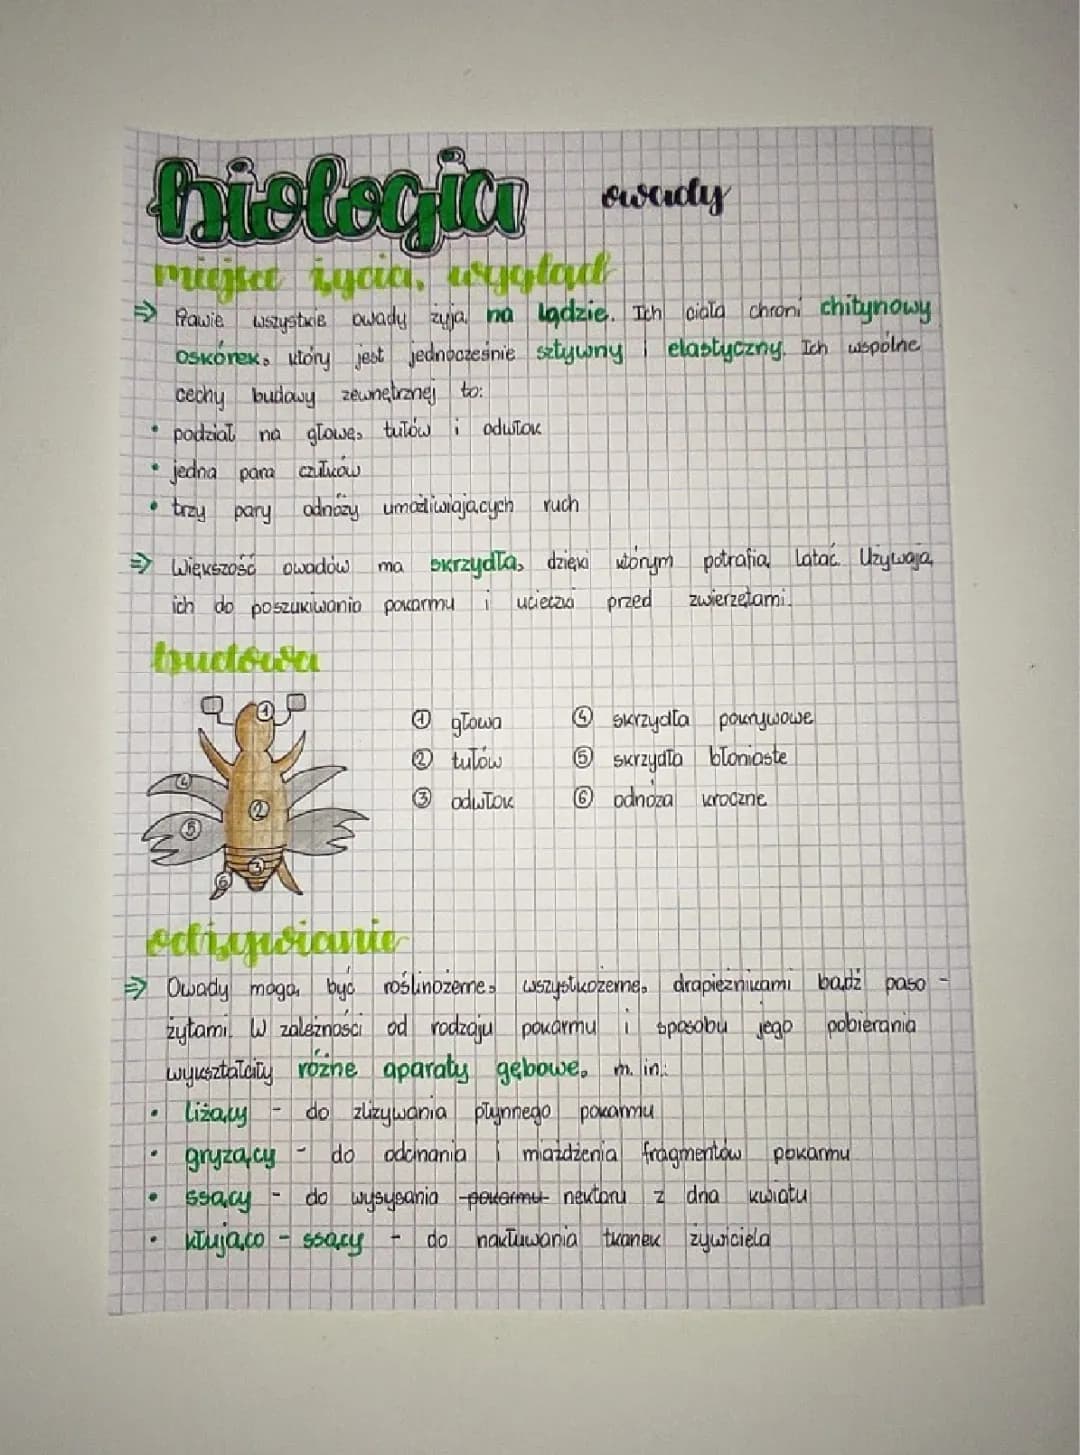 biologia owady
miejsce życia, wygląd
⇒ Prawie wszystkie owady żyją na lądzie. Ich ciała chroni chitynowy
oskórek, który jest jednocześnie sztywny i elastyczny. Ich wspólne
cechy budowy zewnętrznej to:
• podział na głowę, tułów i odwłok
• jedna para czułków
• trzy pary odnóży umożliwiających ruch
⇒ Większość owadów ma skrzydła, dzięki którym potrafią latać. Używają
ich do poszukiwania pokarmu i ucieczki przed zwierzętami.
budowa
① głowa ④ skrzydła pokrywowe
② tułów ⑤ skrzydła błoniaste
③ odwłok ⑥ odnóża kroczne
1
4
2
5
3
6
odżywianie
⇒ Owady mogą być roślinożerne, wszystkożerne, drapieżnikami bądź paso-
żytami. W zależności od rodzaju pokarmu i sposobu jego pobierania
wykształciły różne aparaty gębowe, m. in.:
• liżący - do zlizywania płynnego pokarmu
• gryzący - do odcinania i miażdżenia fragmentów pokarmu
• ssący - do wysysania pokarmu nektaru z dna kwiatu
• kłująco - ssący - do nakłuwania tkanek żywiciela